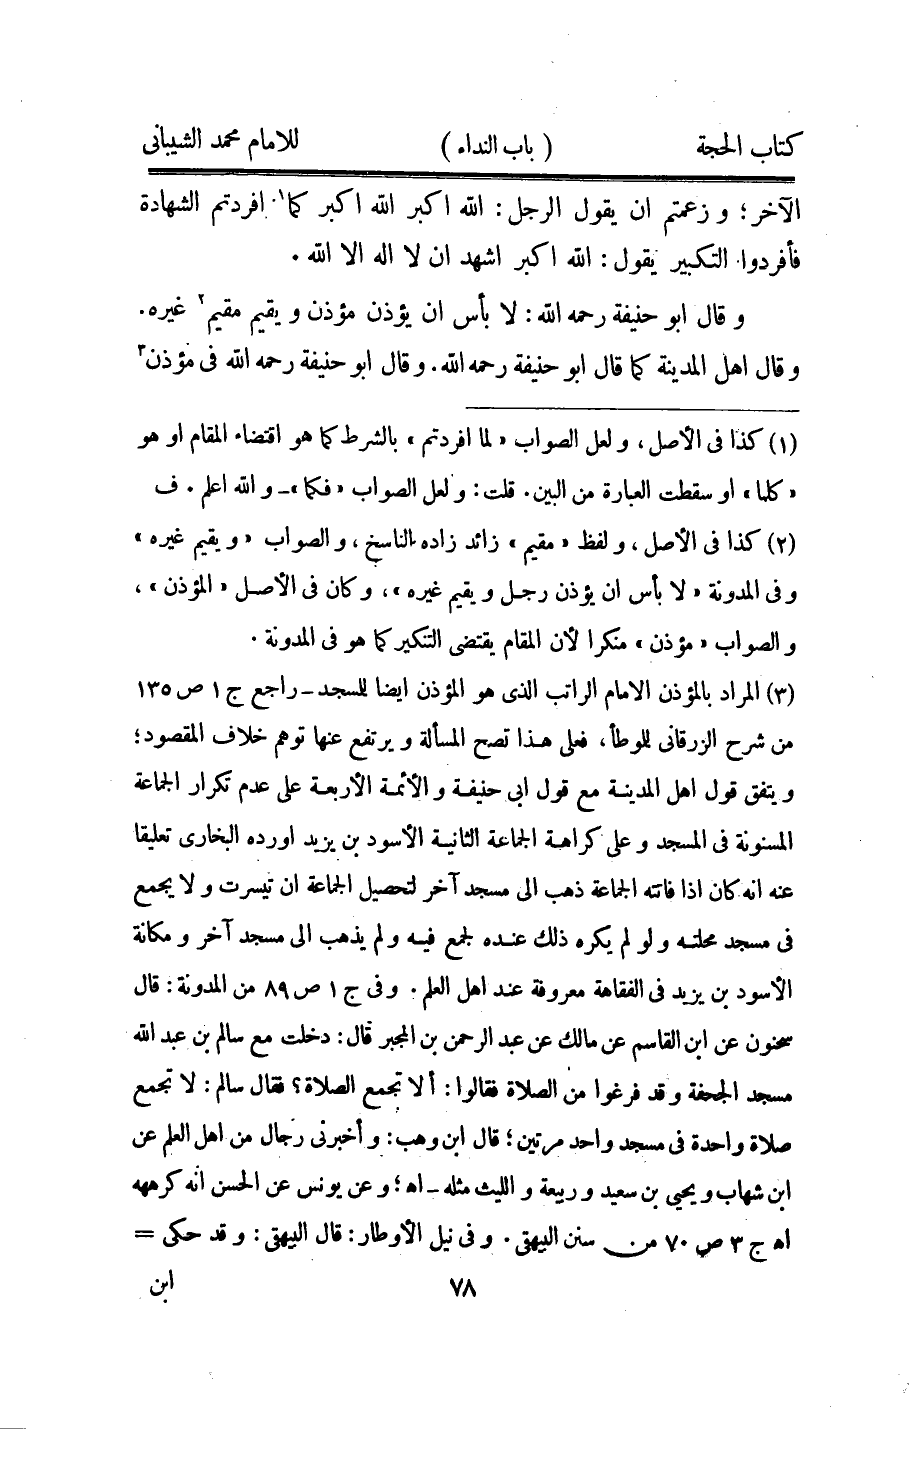 كتاب الحجة ( باب النداء ) للامام محمد الشيبانى
الآخر؛ و زعمتم ان يقول الرجل: الله اكبر الله اكبر كما١ افردتم الشهادة
فأفردوا التكبير يقول: الله اكبر اشهد ان لا اله الا الله .
و قال ابو حنيفة رحمه الله: لا بأس ان يؤذن مؤذن و يقيم مقيم٢ غيره.
و قال اهل المدينة كما قال ابو حنيفة رحمه الله. و قال ابو حنيفة رحمه الله فى مؤذن٣
(١) كذا فى الأصل، و لعل الصواب «لما افردتم» بالشرط كما هو اقتضاء المقام او هو
«كلما» او سقطت العبارة من البين. قلت: و لعل الصواب «فكما» ـ و الله اعلم . ف
(٢) كذا فى الأصل، و لفظ «مقيم» زائد زاده الناسخ، و الصواب «و يقيم غيره»
و فى المدونة «لا بأس ان يؤذن رجل و يقيم غيره»، و كان فى الأصل «المؤذن»،
و الصواب «مؤذن» منكرا لأن المقام يقتضى التنكير كما هو فى المدونة .
(٣) المراد بالمؤذن الامام الراتب الذى هو المؤذن ايضا للسجد ـ راجع ج ١ ص ١٣٥
من شرح الزرقانى للوطأ، فعلى هذا تصح المسألة و يرتفع عنها توهم خلاف المقصود؛
و يتفق قول اهل المدينة مع قول ابى حنيفة و الأئمة الأربعة على عدم تكرار الجماعة
المسنونة فى المسجد و على كراهة الجماعة الثانية الأسود بن يزيد اورده البخارى تعليقا
عنه انه كان اذا فاتته الجماعة ذهب الى مسجد آخر لتحصيل الجماعة ان تيسرت و لا يجمع
فى مسجد محلته و لو لم يكره ذلك عنده لجمع فيه و لم يذهب الى مسجد آخر و مكانة
الأسود بن يزيد فى الفقاهة معروفة عند اهل العلم . و فى ج ١ ص ٨٩ من المدونة: قال
سحنون عن ابن القاسم عن مالك عن عبد الرحمن بن المجبر قال: دخلت مع سالم بن عبد الله
مسجد الجحفة و قد فرغوا من الصلاة فقالوا: ألا تجمع الصلاة؟ فقال سالم: لا تجمع
صلاة واحدة فى مسجد واحد مرتين؛ قال ابن وهب: و أخبرنى رجال من اهل العلم عن
ابن شهاب و يحيى بن سعيد و ربيعة و الليث مثله ـ اه؛ و عن يونس عن الحسن انه كرهه
اه ج ٣ ص ٧٠ من سنن البيهقى . و فى نيل الأوطار: قال البيهقى: و قد حكى =
٧٨ ابن